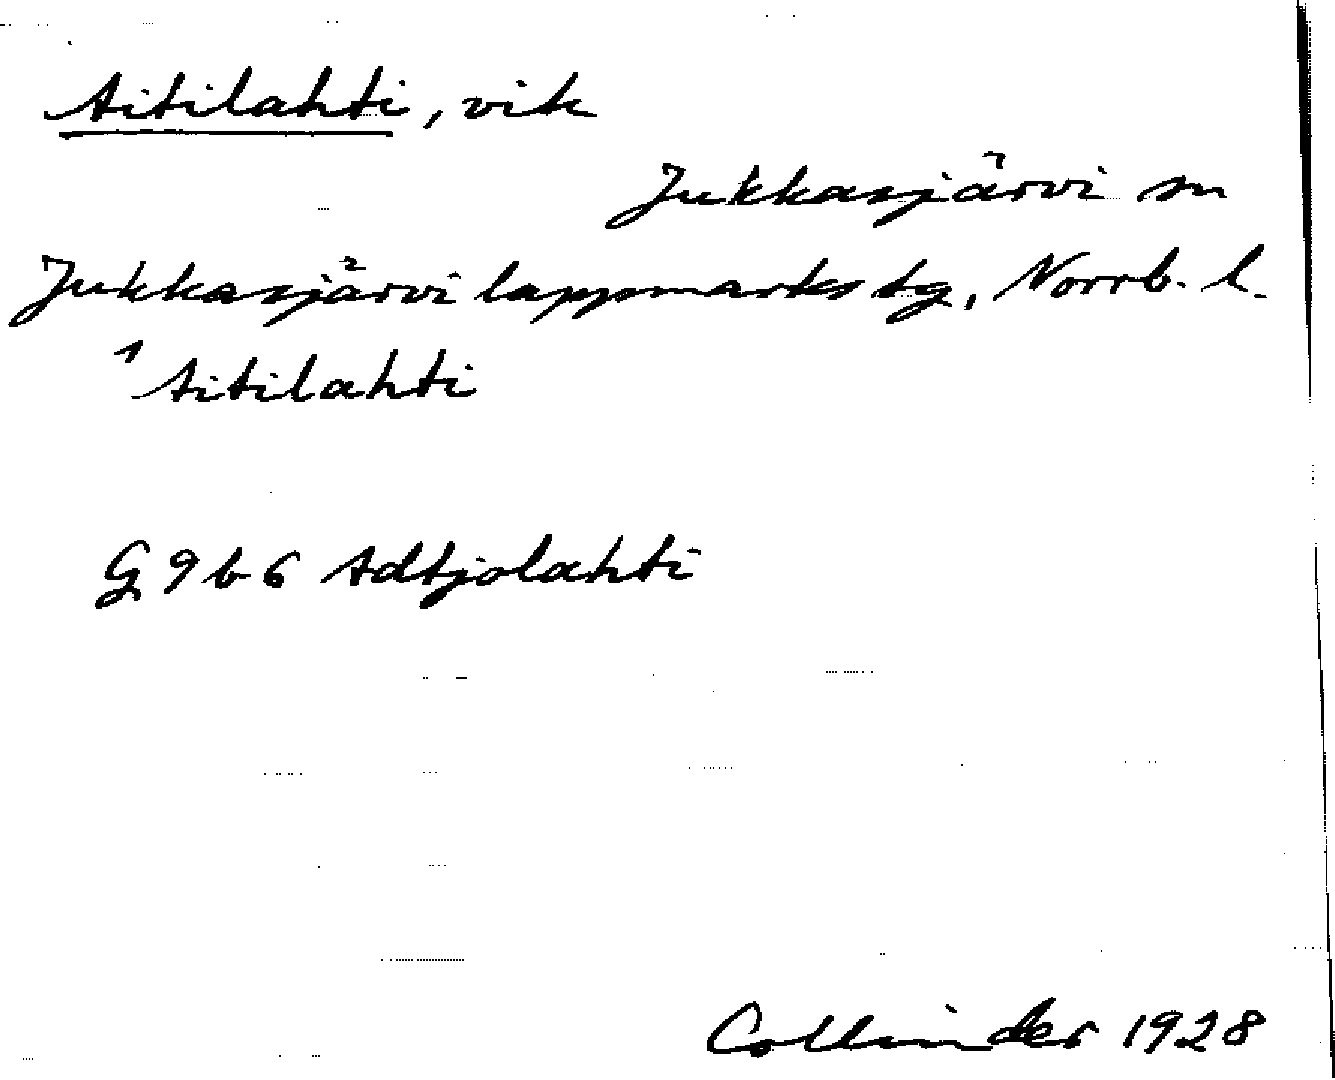 Aitilahti, vik
Jukkasjärvi sn
Jukkasjärvi lappmarks tg, Norrb. l.
Aitilahti
G 9 b 6 Adtjolahti
Collinder 1928